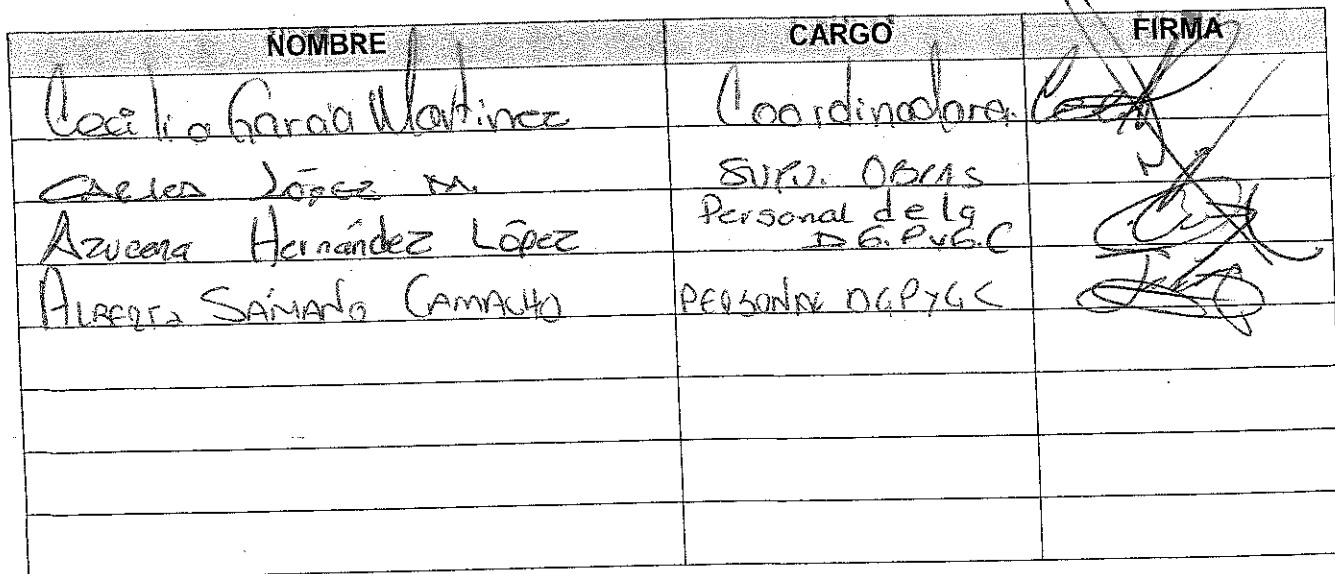 NOMBRE CARGO FIRMA
Cecilia García Martinez Coordinadora.
Carlos López M. SUPV. OBRAS
Azucena Hernández López Personal de la
D G. P y G. C
ALBERTO SÁMANO CAMACHO PERSONAL DGPYGC